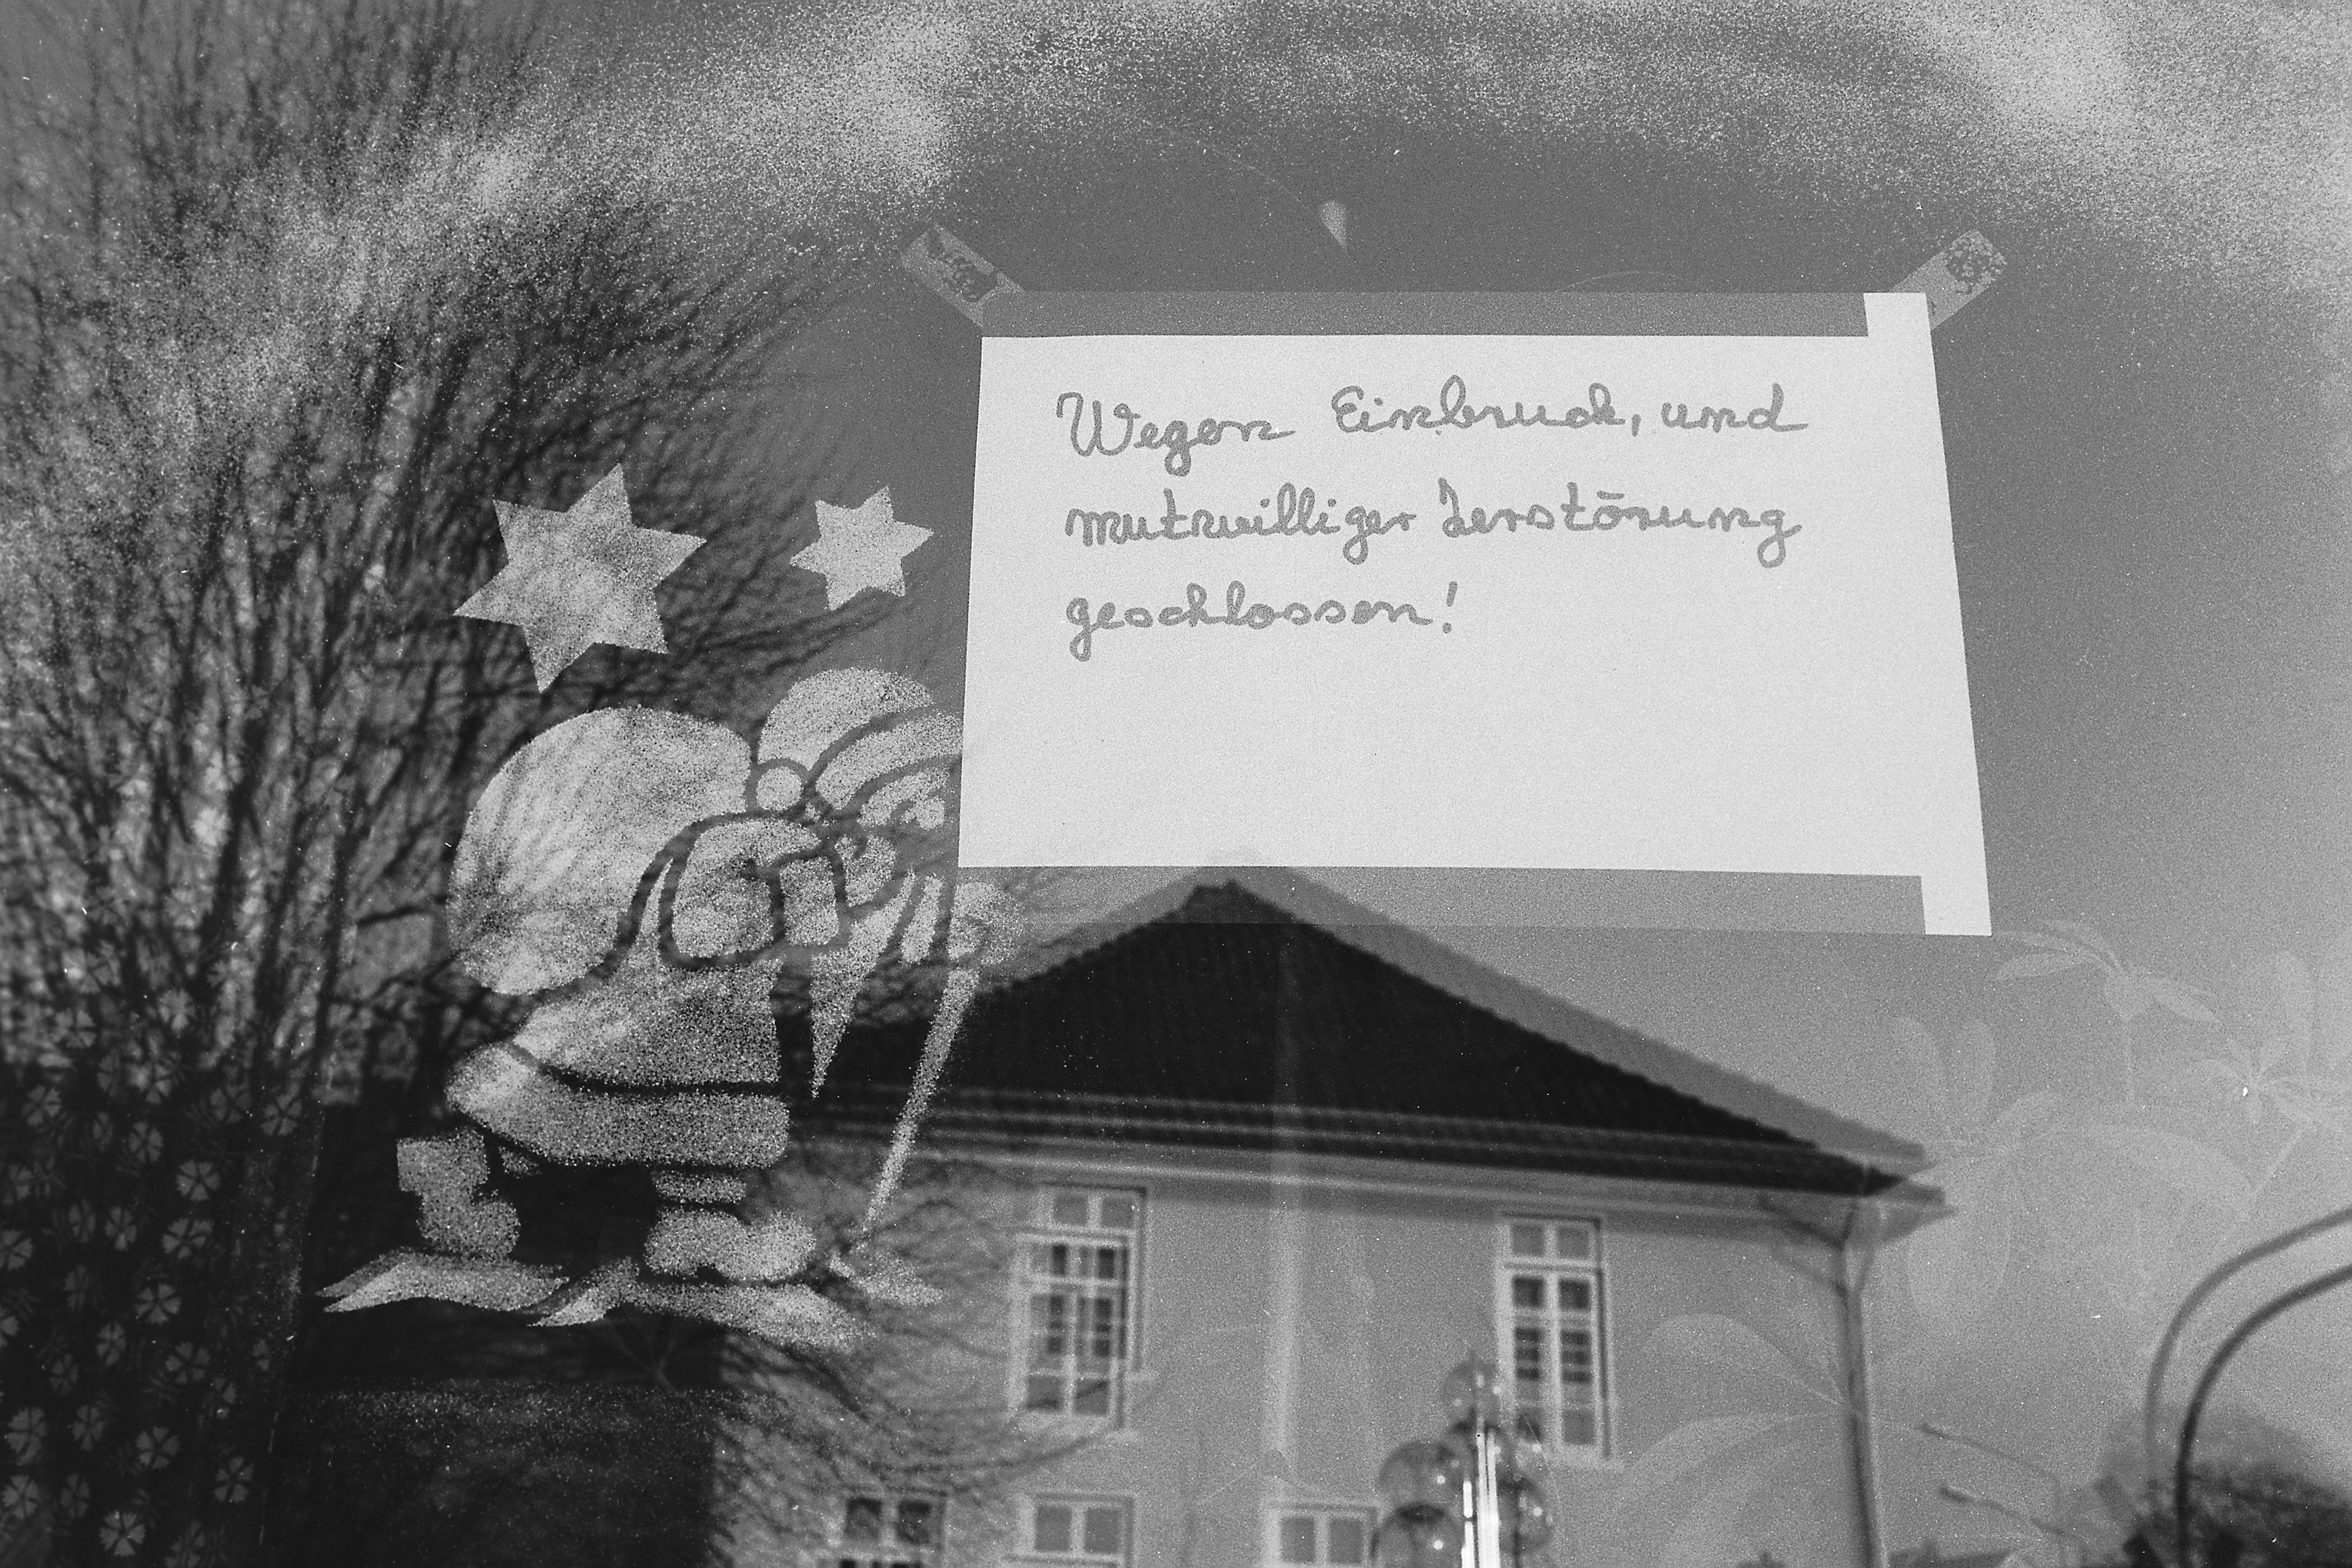 Wegen Einbruch, und
mutwilliger Zerstörung
geschlossen!